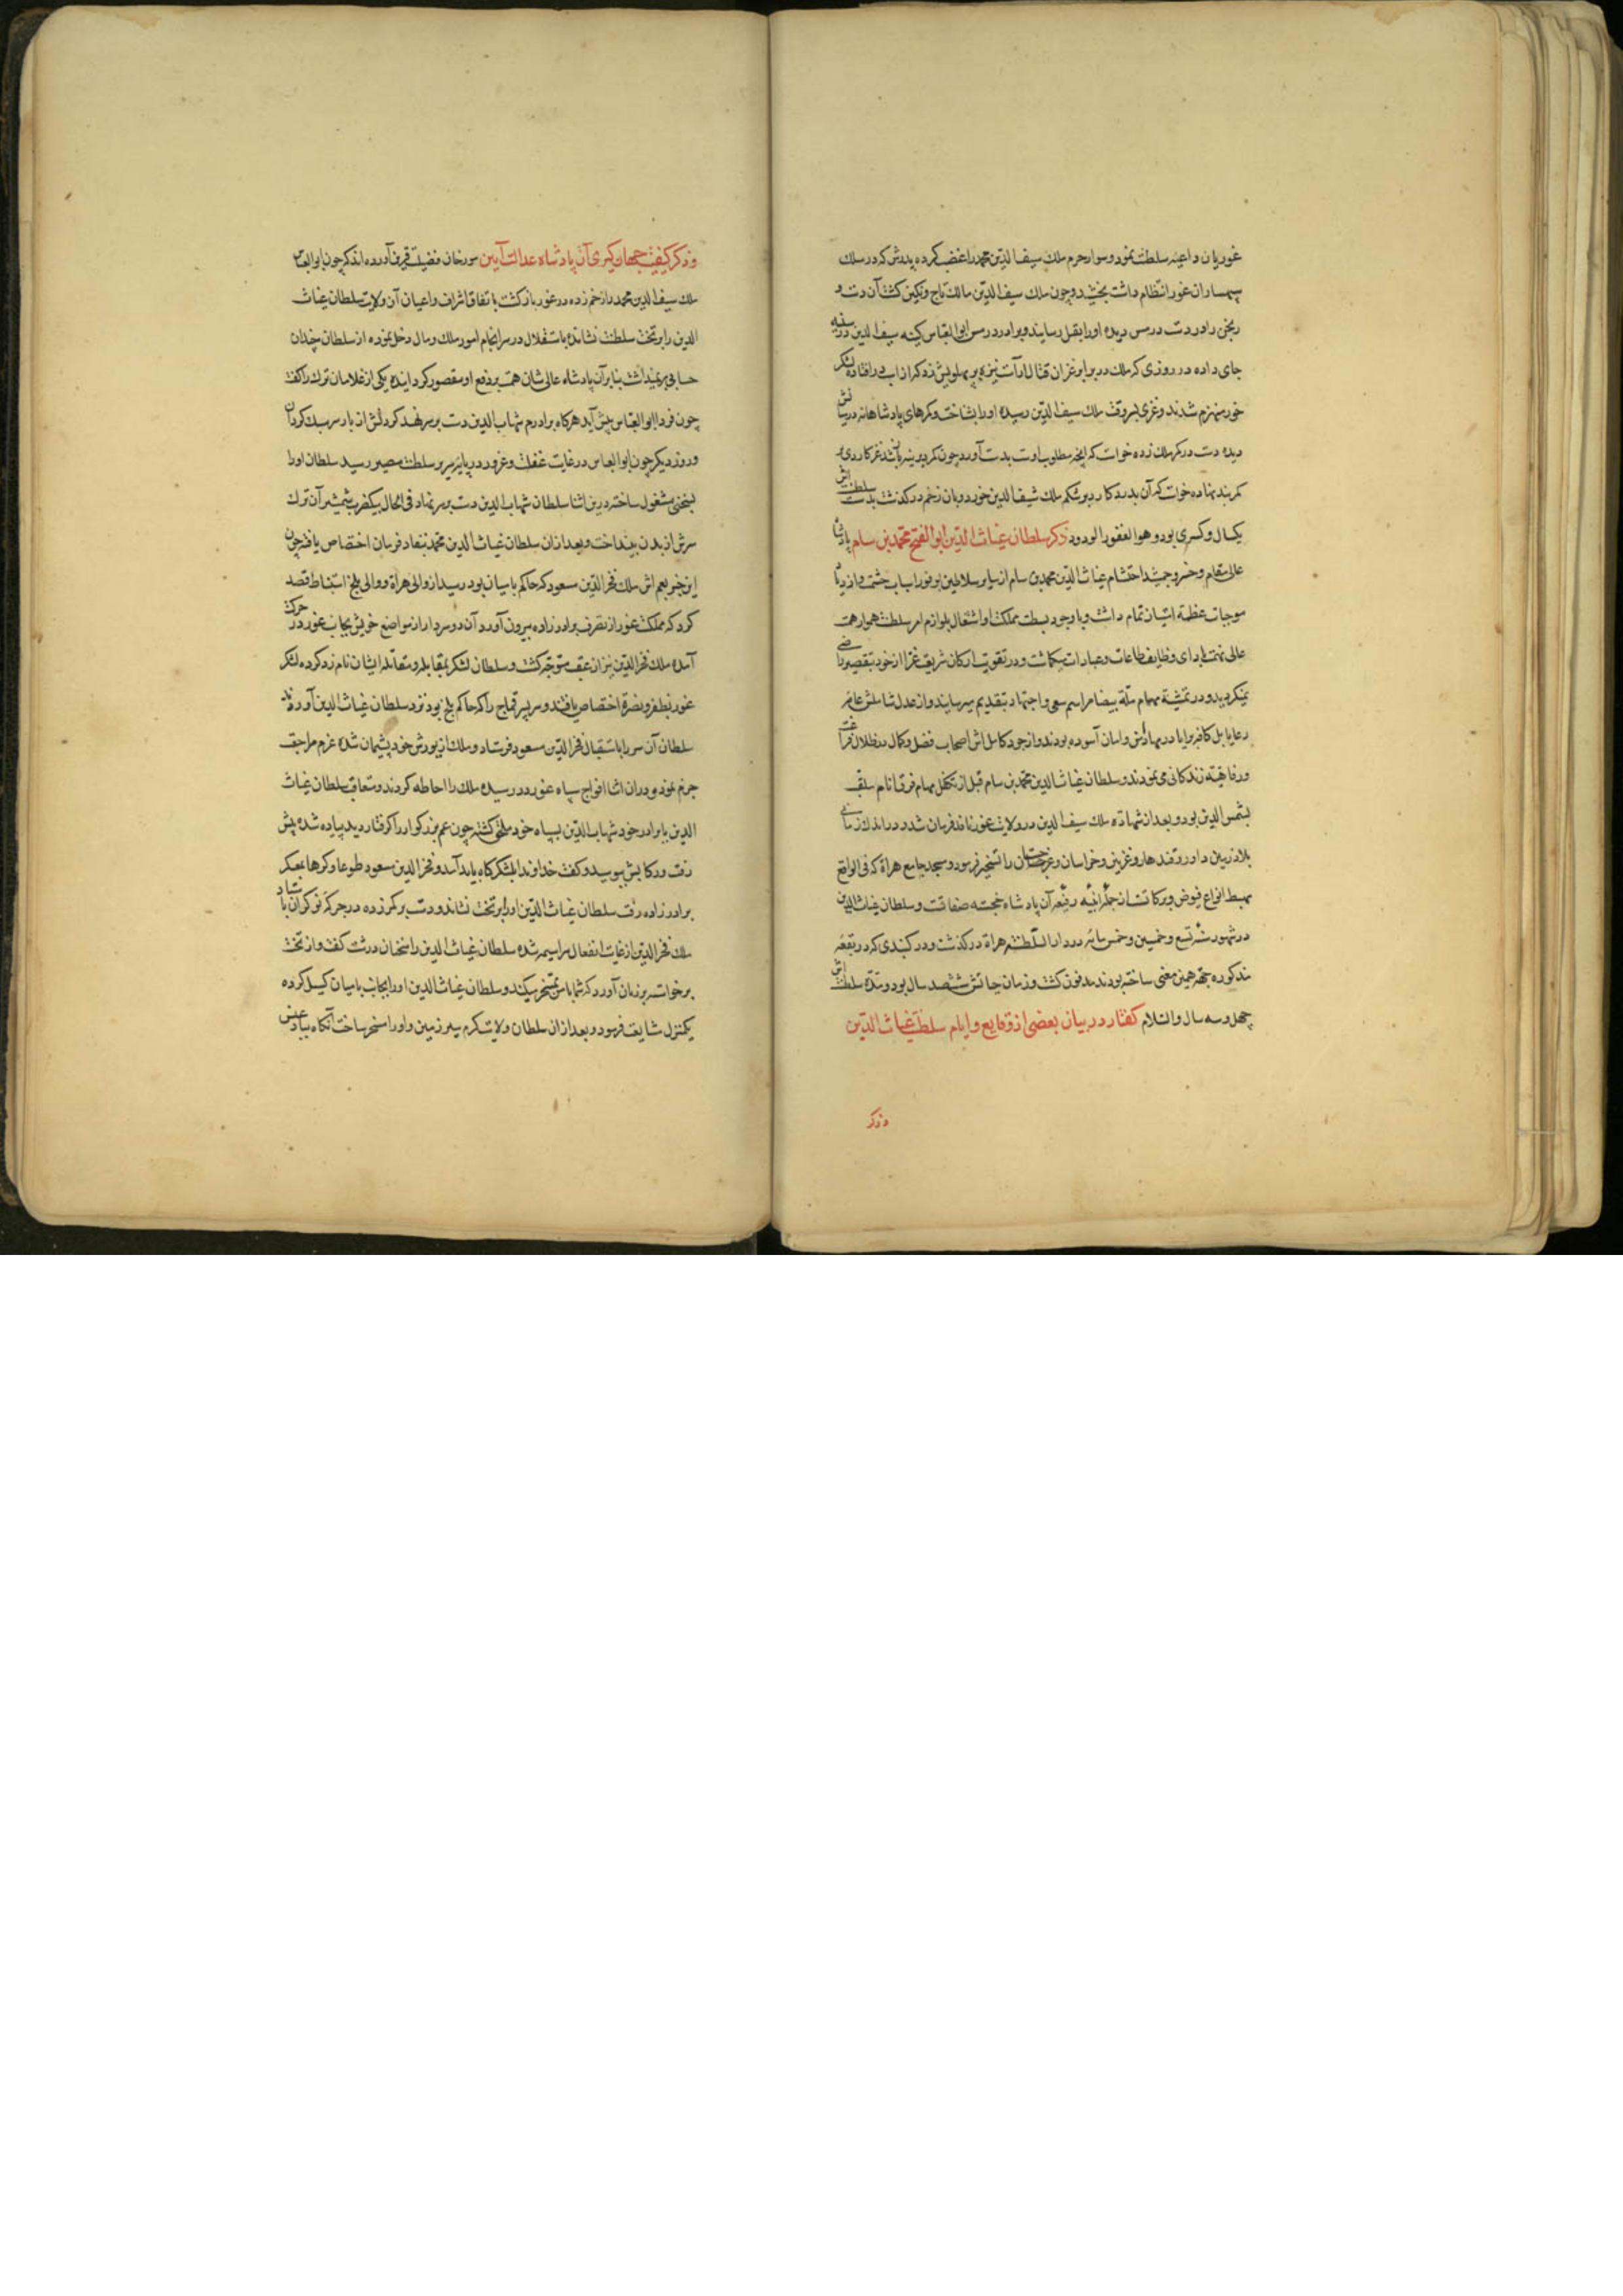 غوریان داعیه سلطنت نمود و سوار حرم ملک سیف الدین محمد را غضب کرده پدرش که در سلک
سپهسالاران غور انتظام داشت بخشید و چون ملک سیف الدین مالک تاج و نگین گشت آن دست و
رنجن را در دست درمس دیده او را بقتل رسانید و برادر درمس ابوالعباس کینه سیف الدین در سینه
جای داده در روزی که ملک در برابر غزان قتال آراست نیزه بر پهلویش زد که از اسب در افتاد و لشکر
غور منهزم شدند و غزی بسر وقت ملک سیف الدین رسیده او را بشناخت و کمرهای پادشاهانه در میانش
دیده دست در کمر ملک زده خواست که آنچه مطلوب اوست بدست آورد چون کمر دیر باز شد غز کاردی بر
کمربند نهاده خواست که آن بدرد کارد بر شکم ملک سیف الدین خورد و بان زخم درگذشت مدت سلطنتش
یکسال و کسری بود و هو الغفور الودود ذکر سلطان غیاث الدین ابو الفتح محمد بن سام پادشاه
عالی مقام و خسرو جمشید احتشام غیاث الدین محمد بن سام از سایر سلاطین بوفور اسباب حشمت و ازدیاد
موجبات عظمة امتیاز تمام داشت و با وجود بسطت مملکت و اشتغال بلوازم امر سلطنت هموار همت
عالی نهمت بادای وظایف طاعات و عبادات میگماشت و در تقویت ارکان شریعت غرا از خود بتقصیر راضی
نمیگردید و در تمشیة مهام ملة بیضا مراسم سعی و اجتهاد بتقدیم میرسانید و از عدل شاملش عامه
رعایا بل کافه برایا در مهاد امن و امان آسوده بودند و از جود کاملش اصحاب فضل و کمال در ظلال فراغت
و رفاهیة زندکانی می نمودند و سلطان غیاث الدین محمد بن سام قبل از تکفل مهام فرق انام ملقب
بشمس الدین بود و بعد از شهادة ملک سیف الدین در ولایت غور نافذ فرمان شد و در اندک زمانی
بلاد زمین داور و قندهار و غزنین و خراسان و غرجستان را تسخیر فرمود و مسجد جامع هراة که فی الواقع
مهبط انواع فیوض و برکاتست از جمله ابنیه رفیعه آن پادشاه خجسته صفاتست و سلطان غیاث الدین
در شهور سنه تسع و خمسین و خمس مائه در دار السلطنه هراة درگذشت و در گنبدی که در بقعه
مذکوره بجهة همین معنی ساخته بودند مدفون گشت و زمان حیاتش شصد سال بود و مدة سلطنتش
چهل و سه سال والسلام گفتار در بیان بعضی از وقایع و ایام سلطنت غیاث الدین
و ذکر
و ذکر کیفیت جهان گیری آن پادشاه عدالت آیین مورخان فضیلت قرین آورده اند که چون ابوالعباس
ملک سیف الدین محمد را زخم زده در غور بازگشت باتفاق اشراف و اعیان آن ولایت سلطان غیاث
الدین را بر تخت سلطنت نشانده باستقلال در سرانجام امور ملک و مال دخل نموده از سلطان چندان
حسابی بر نمیداشت بنابر آن پادشاه عالی شان همت بر دفع او مقصور کردانیده یکی از غلامان ترک را گفت
چون فردا ابوالعباس پیش آید هرکاه برادرم شهاب الدین دست بر سر نهد گردنش از بار سر سبک کردان
و روز دیگر چون ابوالعباس در غایت غفلت و غرور در پایه سریر سلطنت مصیر رسید سلطان او را
بسخن مشغول ساخته درین اثنا سلطان شهاب الدین دست بر سر نهاد فی الحال بیک ضرب شمشیر آن ترک
سرش از بدن بینداخت و بعد از آن سلطان غیاث الدین محمد بنفاد فرمان اختصاص یافته چون
این خبر بعم اش ملک فخر الدین مسعود که حاکم بامیان بود رسید از والی هراة و والی بلخ استنباط قصد
کرد که مملکت غور از تصرف برادرزاده بیرون آورد آن دو سردار از مواضع خویش بجانب غور در حرکت
آمده ملک فخر الدین نیز از عقب متوجه گشت و سلطان لشکر بمقابله و مقاتله ایشان نام زد کرده لشکر
غور بظفر و نصرة اختصاص یافتند و سر پسر قماج را که حاکم بلخ بود نزد سلطان غیاث الدین آوردند
سلطان آن سر را باستقبال فخر الدین مسعود فرستاد و ملک از یورش خود پشیمان شده عزم مراجعت
جزم نمود و در آن اثنا افواج سپاه غور در رسیده ملک را احاطه کردند و متعاقب سلطان غیاث
الدین با برادر خود شهاب الدین بسپاه خود ملحق گشته چون عم بزرکوار را گرفتار دید پیاده شده پیش
رفت و رکابش ببوسید و گفت خداوند را بلشکرگاه باید آمد و فخر الدین مسعود طوعا و کرها بمعسکر
برادرزاده رفت سلطان غیاث الدین او را بر تخت نشاند و دست بر کمر زده در جرگه نوکران بایستاد
ملک فخر الدین از غایت انفعال سراسیمه شده سلطان غیاث الدین را سخنان درشت گفت و از تخت
برخواسته بر زبان آورد که شما با من تمسخر میکنید و سلطان غیاث الدین او را بجانب بامیان گسیل کرده
یکمنزل مشایعت فرمود و بعد از آن سلطان ولایت گرم سیر زمین داور را مسخر ساخت آنکاه ببادغیس